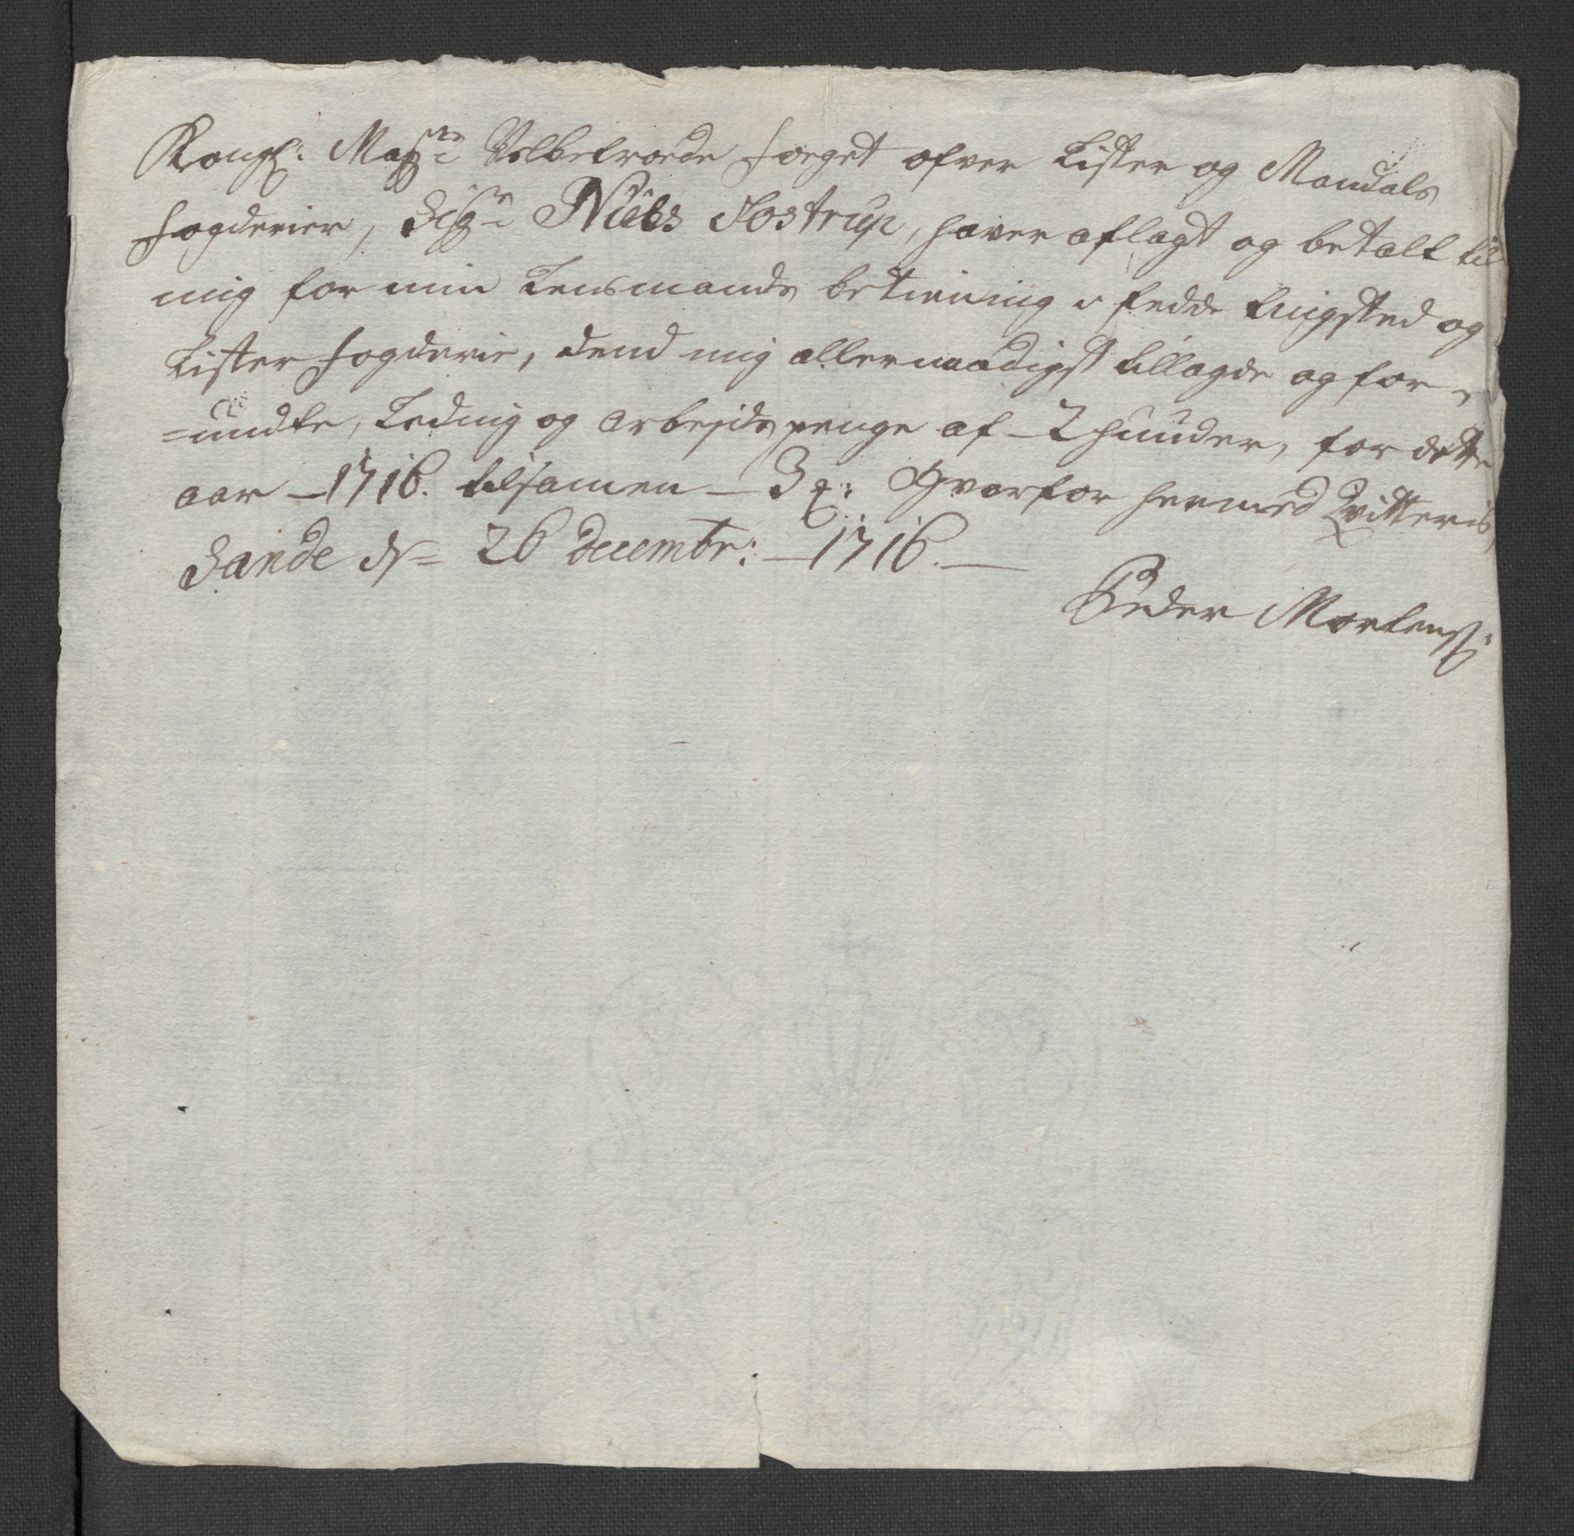 Kongl: May:tz Velbetroede Foeget ofver Lister og Mandals
Fogderier, Sig:r Niels Jostrup, haver aflagt og betalt til
mig for min Lensmands betiening i Fedde tingsted og
Lister Fogderie, dend mig allernaadigst tillagde og for-
=undte, Leding og arbejds penge af - 2 huuder, for dette
aar - 1716. tilsamen - 3 Rx: Hvorfor hermed Qvitteris,
Sande d: 26 decembr: - 1716. -
Peder Mortens: